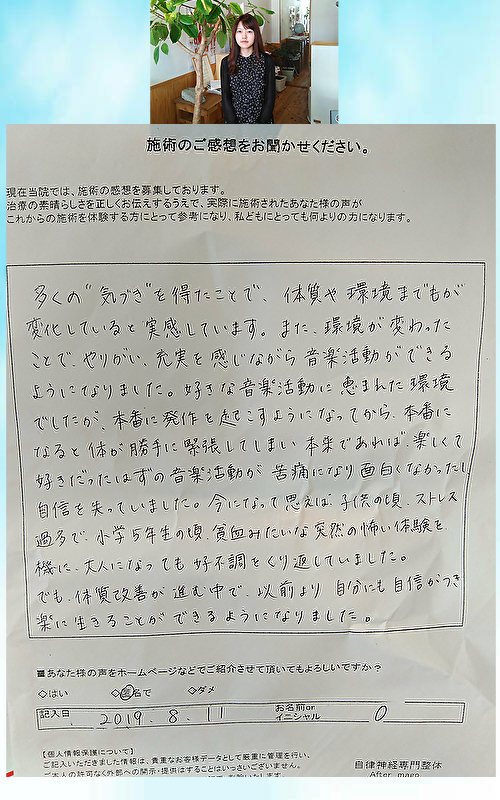 施術のご感想をお聞かせください。
現在当院では、施術の感想を募集しております。
治療の素晴らしさを正しくお伝えするうえで、実際に施術されたあなた様の声が
これからの施術を体験する方にとって参考になり、私どもにとっても何よりの力になります。
多くの"気づき"を得たことで、体質や環境までもが
変化していると実感しています。また、環境が変わった
ことで、やりがい、充実を感じながら音楽活動ができる
ようになりました。好きな音楽活動に恵まれた環境
でしたが、本番に発作を起こすようになってから、本番に
なると体が勝手に緊張してしまい本来であれば、楽しくて
好きだったはずの音楽活動が苦痛になり面白くなかったし
自信を失っていました。今になって思えば、子供の頃、ストレス
過多で、小学5年生の頃、貧血みたいな突然の怖い体験を
機に、大人になっても好不調をくり返していました。
でも、体質改善が進む中で、以前より自分にも自信がつき
楽に生きることができるようになりました。
■あなた様の声をホームページなどでご紹介させて頂いてもよろしいですか?
◇はい ◇匿名で ◇ダメ
記入日 2019.8.11 お名前or
イニシャル O
【個人情報保護について】
ご記入いただきました情報は、貴重なお客様データとして厳重に管理を行い、
ご本人の許可なく外部への開示・提供はすることはいっさいございません。
自律神経専門整体